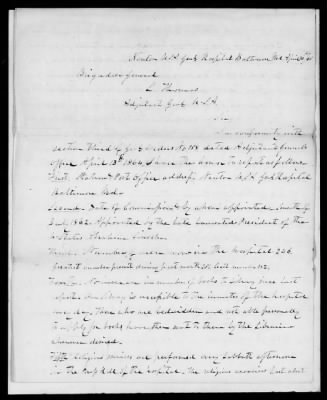 Newton U.S.A. Genl. Hospital Baltimore Md. April 30th 65
Brigadier General
L. Thomas
Adjutant Genl U.S.A.
Sir
In conformity with
section third of Genl Orders No 158 dated Adjutant Generals
Office April 13th 1864, I have the honor to report as follows
First. Station & Post Office address, Newton U.S.A. Genl Hospital
Baltimore Md.
Second. Date of Commission & by whom appointed.
July 1862. Appointed by the late lamented President of the
U States Abraham Lincoln.
Third. Number of men now in the Hospital 246
Greatest number present during past month least number 112.
Fourth. No increase in number of books in library since last
report. The library is accessible to the inmates of the hospital
every day. Those who are bedridden and not able personally
to apply for books have them sent to them by the Librarian
whenever desired.
Fifth Religious services are performed every Sabbath afternoon
in the of the hospital. The religious exercises last about